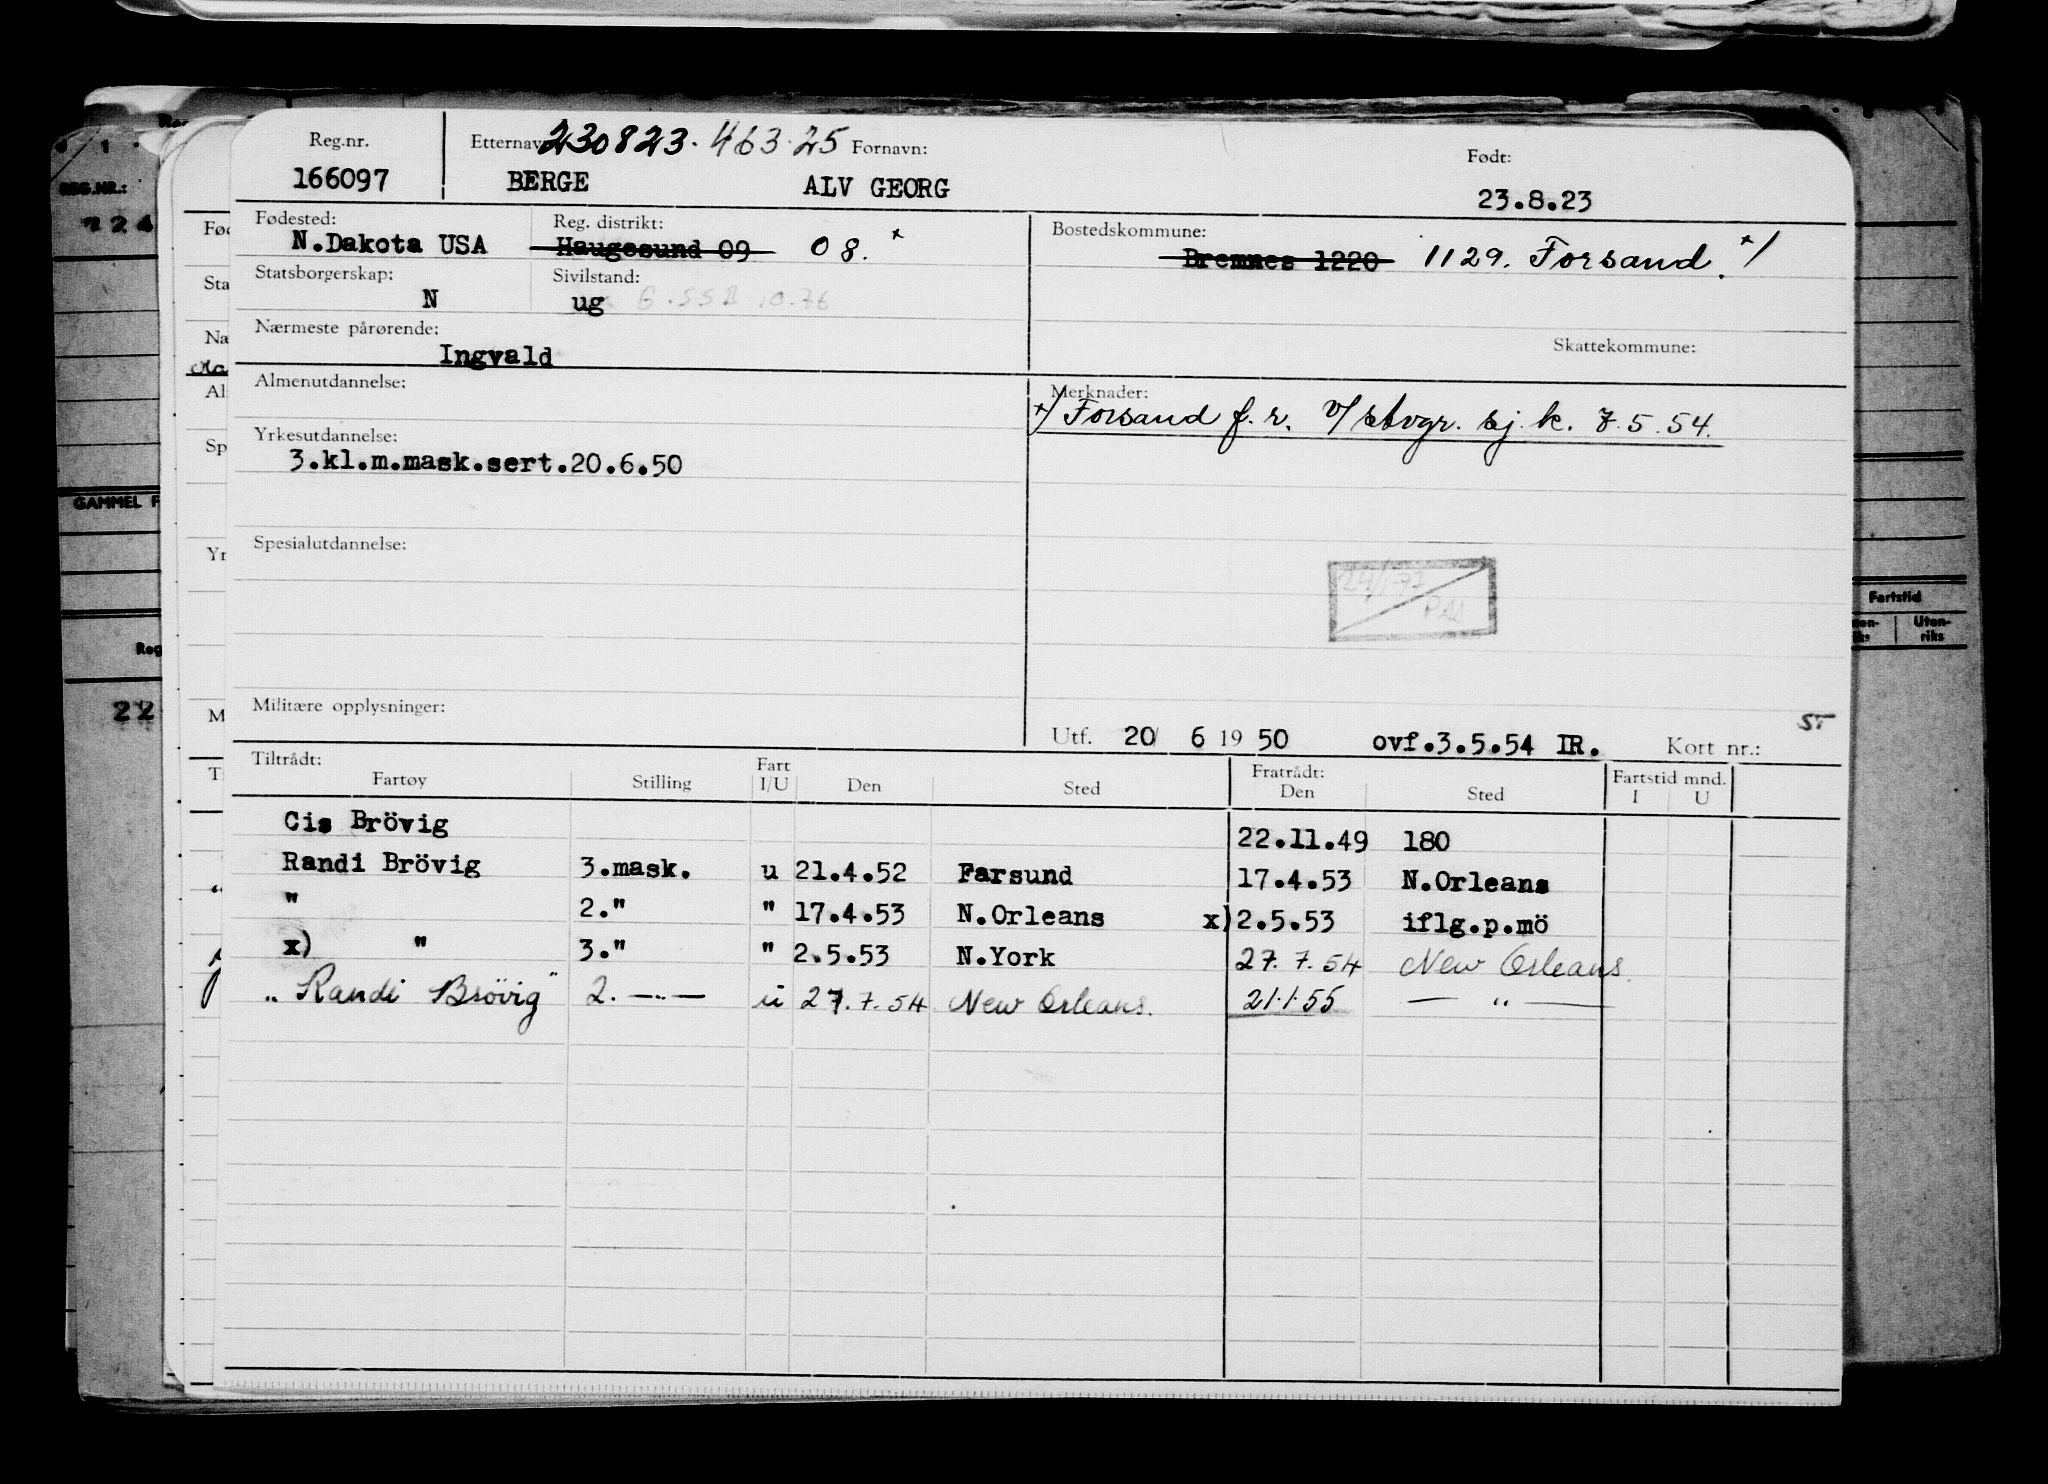 Reg.nr. Etternavn 230823. 463.25 Fornavn: Født:
166097 BERGE ALV GEORG 23.8.23
Fødested: Reg. distrikt: Bostedskommune:
N.Dakota USA Haugesund 09 08. x Bremnes 1220 1129. Forsand. x/
Statsborgerskap: Sivilstand:
N ug
Nærmeste pårørende: Skattekommune:
Ingvald
Almenutdannelse: Merknader:
x/ Forsand f. r. v/ stvgr. sj. k. 7.5.54.
Yrkesutdannelse:
3.kl.m.mask.sert.20.6.50
Spesialutdannelse:
24/1-77
Militære opplysninger:
ST
Utf. 20/ 6 19 50 ovf.3.5.54 IR. Kort nr.:
Tiltrådt: Fratrådt: Fartstid mnd.
Fartøy Stilling Fart I/U Den Sted Den Sted I U
Cis Brövig 22.11.49 180
Randi Brövig 3.mask. u 21.4.52 Farsund 17.4.53 N.Orleans
" 2." " 17.4.53 N.Orleans x) 2.5.53 iflg.p.mö
x) " 3." " 2.5.53 N.York 27.7.54 New Orleans.
"Randi Brövig" 2. —"— u 27.7.54 New Orleans. 21.1.55 — " —
REG.NR.:
GAMMEL F
Fartstid
Uten-
riks